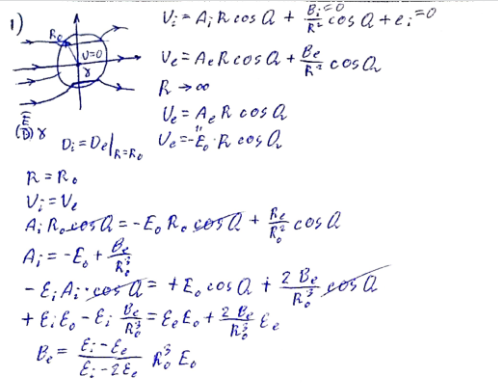 1)
R₀
U=0
γ
(E̅/D̅) γ
Uᵢ = Aᵢ R cos Q + Bᵢ⁼⁰/R² cos Q + eᵢ⁼⁰
Uₑ = Aₑ R cos Q + Bₑ/R² cos Q
R → ∞
Uₑ = Aₑ R cos Q
Dᵢ = Dₑ|R=R₀
Uₑ = -E₀ · R cos Q
R = R₀
Uᵢ = Uₑ
Aᵢ R₀ cos Q = -E₀ R₀ cos Q + Bₑ/R₀² cos Q
Aᵢ = -E₀ + Bₑ/R₀³
-εᵢ Aᵢ · cos Q = +E₀ cos Q + 2Bₑ/R₀³ cos Q
+εᵢ E₀ - εᵢ Bₑ/R₀³ = εₑ E₀ + 2Bₑ/R₀³ εₑ
Bₑ = (εᵢ - εₑ)/(εᵢ - 2εₑ) R₀³ E₀